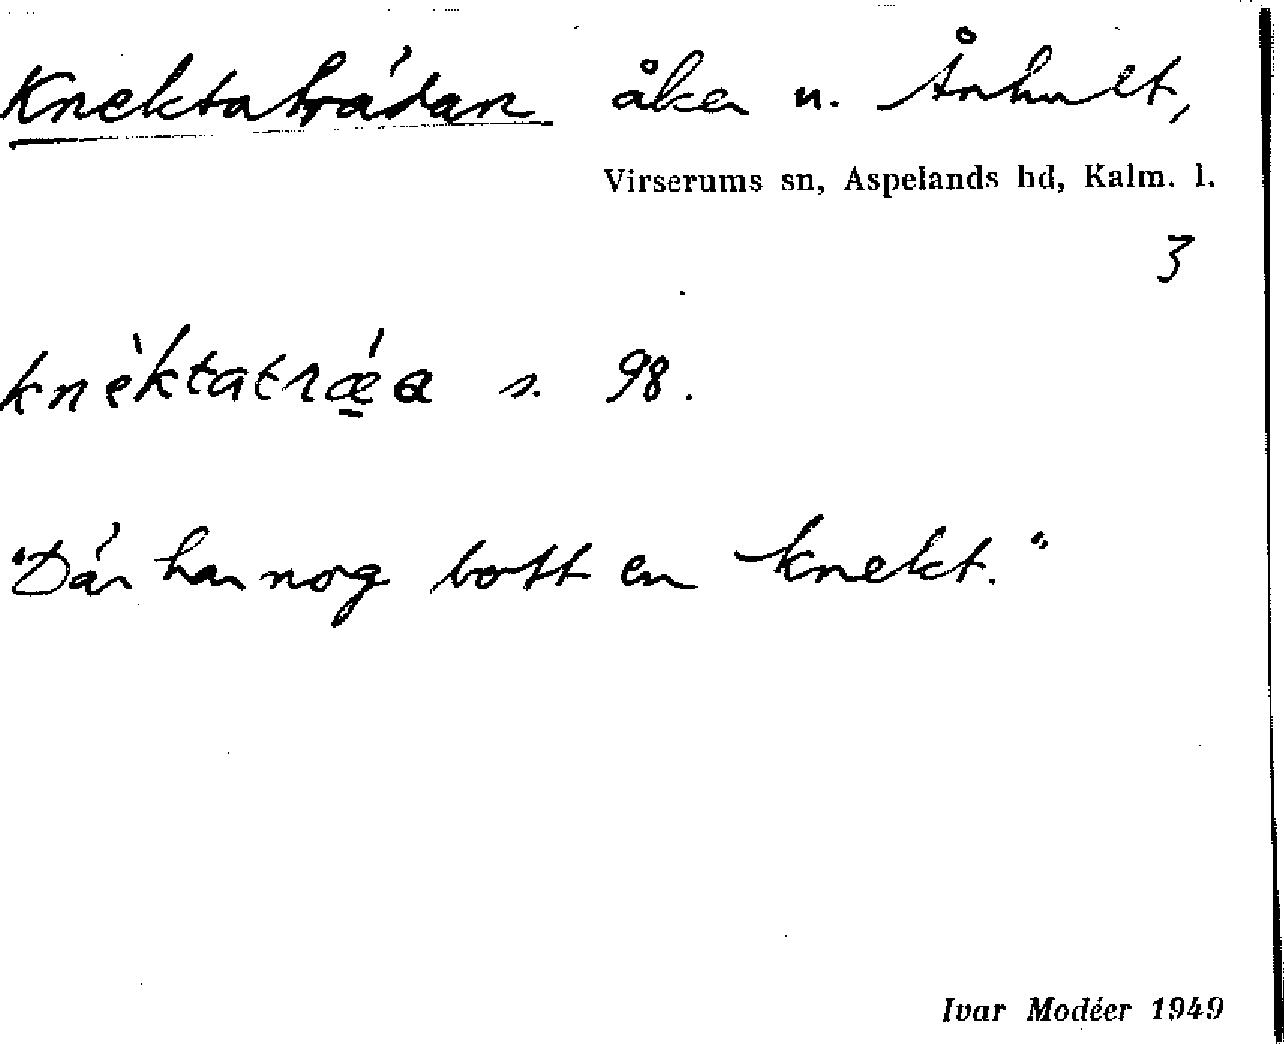 Knektaträdan åker u. Ånhult,
Virserums sn, Aspelands hd, Kalm. l.
3
knèktatrǽa s. 98.
"Där har nog bott en knekt."
Ivar Modéer 1949